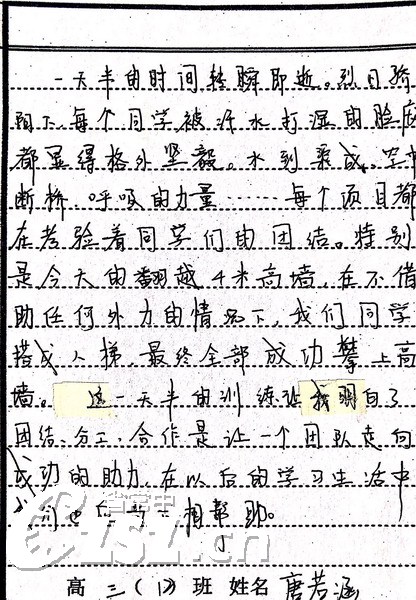 一天半的时间转瞬即逝。烈日骄
阳下，每个同学被汗水打湿的脸庞
都显得格外坚毅。水到渠成、空中
断桥、呼吸的力量……每个项目都
在考验着同学们的团结。特别
是今天的翻越4米高墙，在不借
助任何外力的情况下，我们同学
搭成人梯，最终全部成功攀上高
墙。这一天半的训练让我明白了
团结、分工、合作是让一个团队走向
成功的助力，在以后的学习生活中
相帮助。
高三(12)班 姓名 唐若涵